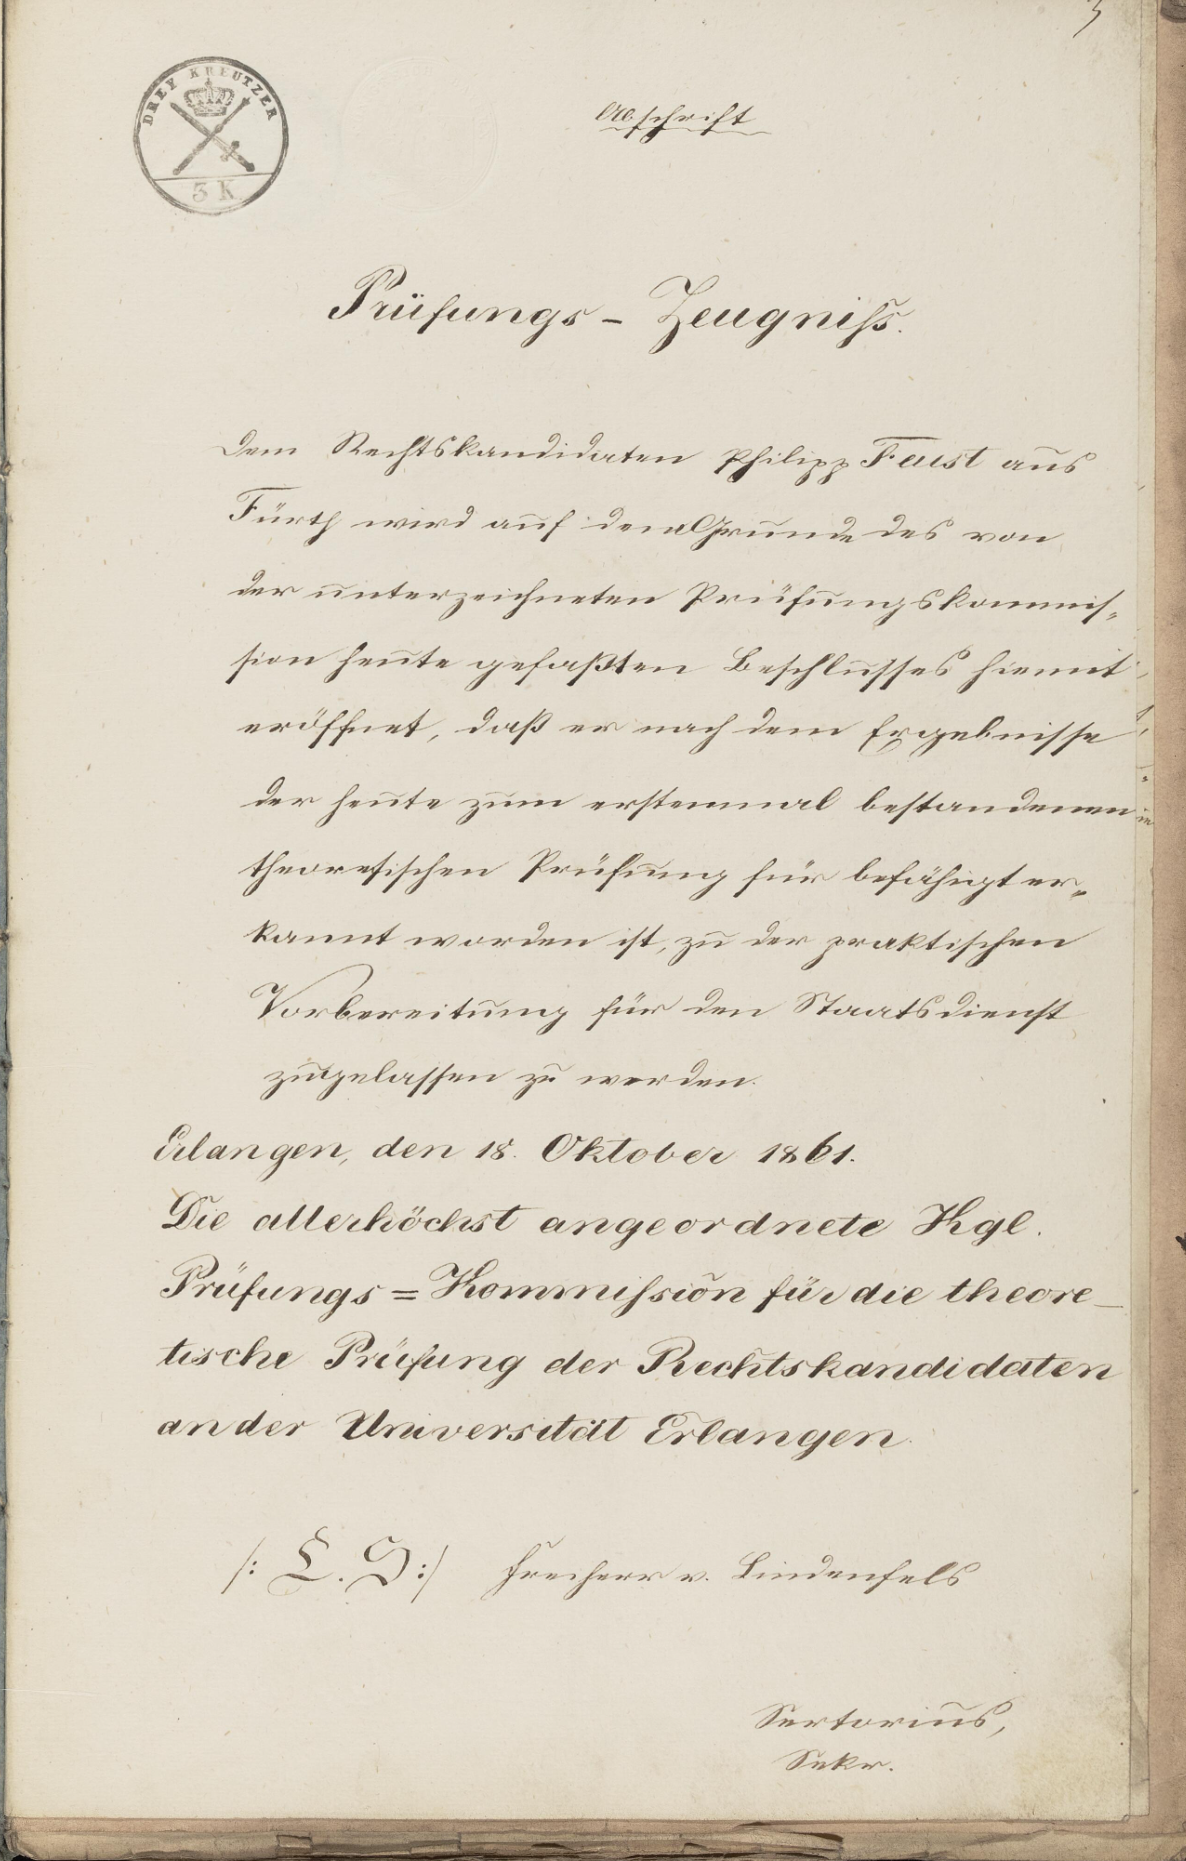 3
DREY KREUTZER
3 K
Abschrift
Prüfungs - Zeugniss.
Dem Rechtskandidaten Philipp Feust aus
Fürth wird auf dem Grunde des von
der unterzeichneten Prüfungskommis„
sion heute gefaßten Beschlusses hiemit
eröffnet, daß er nach dem Ergebnisse
der heute zum erstenmal bestandenen
theoretischen Prüfung für befähigt er„
kannt worden ist, zu der praktischen
Vorbereitung für den Staatsdienst
zugelassen zu werden.
Erlangen, den 18. Oktober 1861.
Die allerhöchst angeordnete Kgl.
Prüfungs=Kommission für die theore-
tische Prüfung der Rechtskandidaten
an der Universität Erlangen.
/: L. S :/ Freiherr v. Lindenfels
Sartorius,
Sekr.